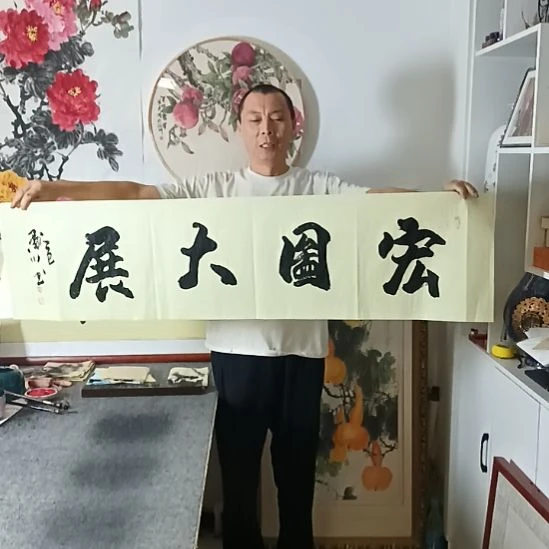 宏圖大展